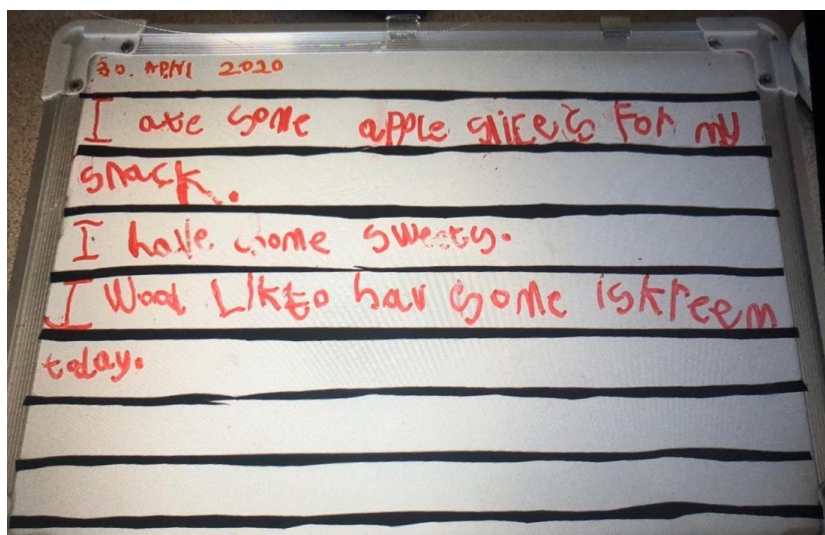 30. APril 2020
I ate some apple slices for my
snack.
I have some sweets.
I Wood Likto hav some iskreem
today.